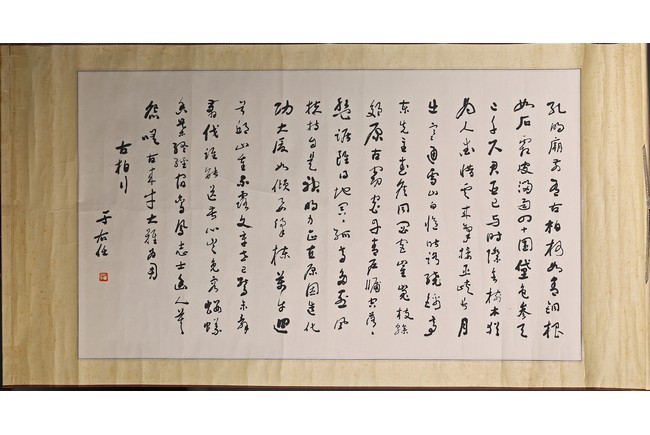 孔明廟前有古柏柯如青銅根
如石霜皮溜雨四十圍黛色參天
二千尺君臣已与時際會樹木猶
為人愛惜雲來氣接巫峽長月
出寒通雪山白憶昨路繞錦亭
東先主武侯同閟宮崔嵬枝榦
郊原古窈窕丹青戶牖空落々
盤踞雖得地冥々孤高多烈風
扶持自是神明力正直原因造化
功大廈如傾要梁棟萬牛迴
首邱山重不露文章世已驚未辭
翦伐誰能送苦心豈免容螻蟻
香葉終經宿鸞鳳志士幽人莫
怨嗟古來才大難為用
古柏行
于右任